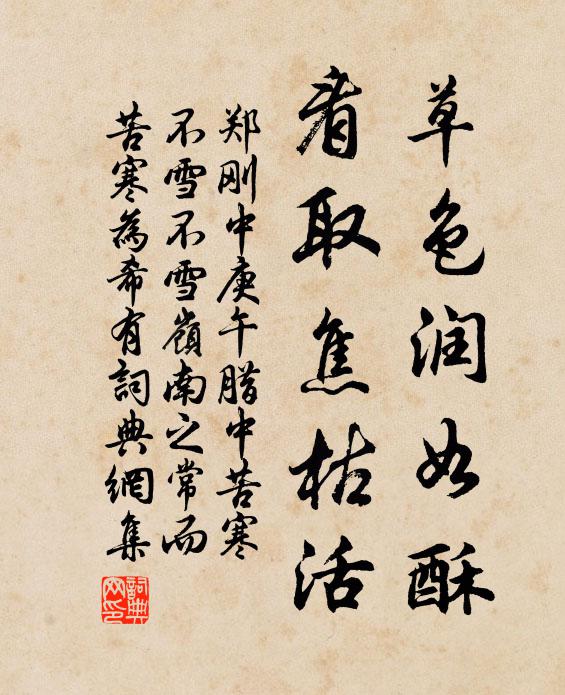 草色润如酥
看取焦枯活
郑刚中庚午腊中苦寒
不雪不雪嶺南之常而
苦寒為希有詞典網集
詞典
网印